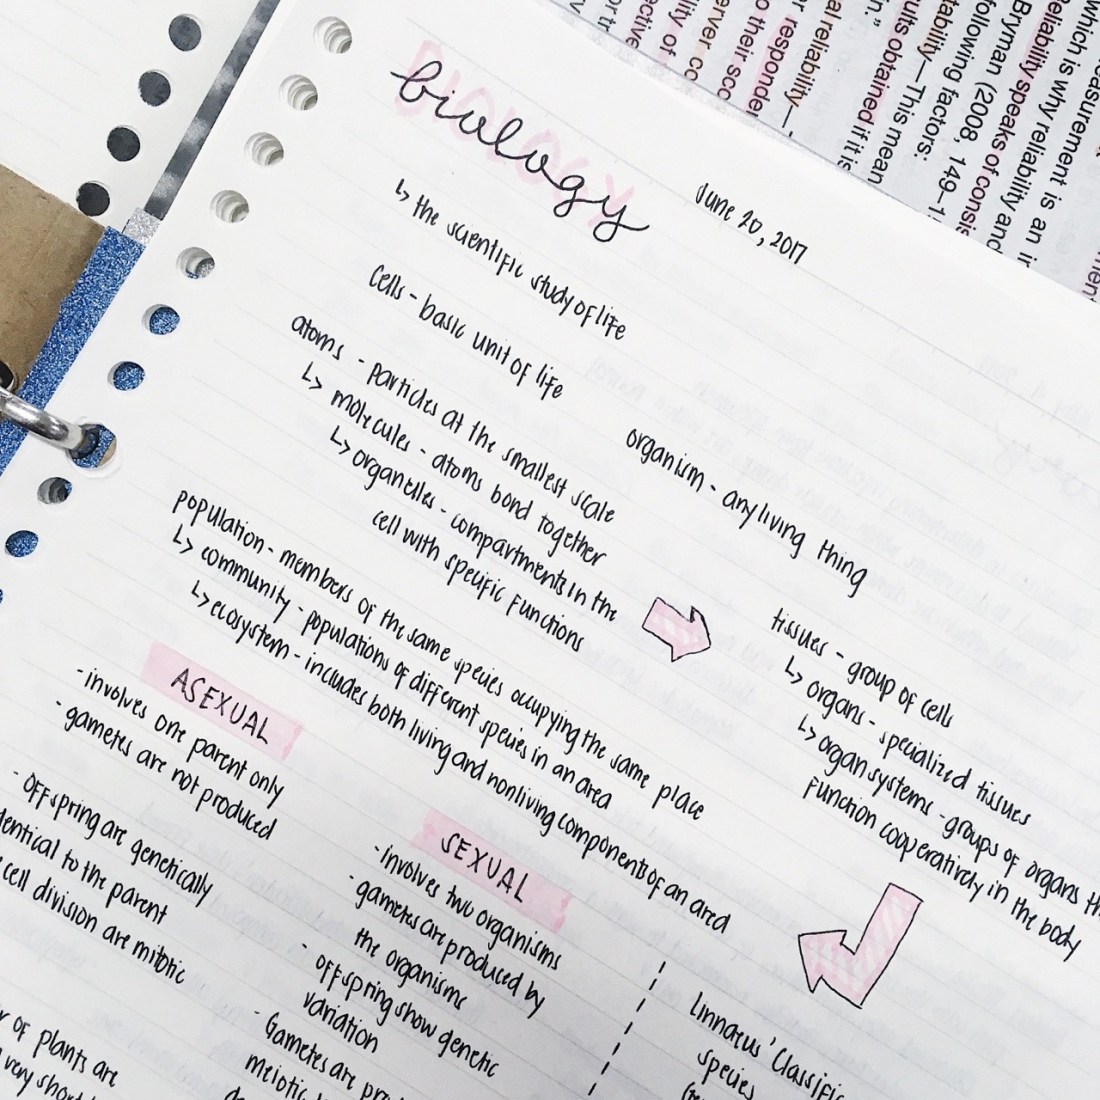 biology
June 20, 2017
↳ the scientific study of life
Cells - basic unit of life
atoms - particles at the smallest scale
↳ molecules - atoms bond together
↳ organelles - compartments in the
cell with specific functions
organism - any living thing
population - members of the same species occupying the same place
↳ community - populations of different species in an area
↳ ecosystem - includes both living and nonliving components of an area
tissues - group of cells
↳ organs - specialized tissues
↳ organ systems - groups of organs th
function cooperatively in the body
ASEXUAL
- involves one parent only
- gametes are not produced
- Offspring are genetically
dentical to the parent
cell division are mitotic
of plants are
very short
SEXUAL
- Involves two organisms
- gametes are produced by
the organisms
- offspring show genetic
variation
- Gametes are pro
meiotic
Linnaeus' Classific
species
which is why reliability and
easurement is an in
Reliability speaks of consis
Bryman (2008, 149-1
following factors:
tability—This mean
ults obtained if it is
al reliability—
r responden
o their sco
erver co
ility of
ective